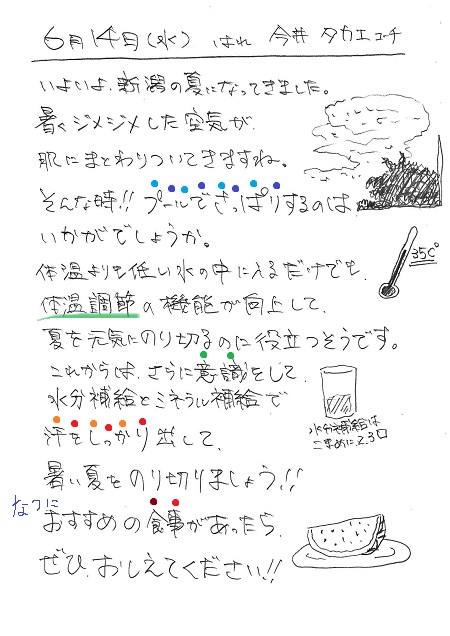 6月14日(水) はれ 今井 タカエコーチ
いよいよ、新潟の夏になってきました。
暑くジメジメした空気が、
肌にまとわりついてきますね。
そんな時!! プールでさっぱりするのは
いかがでしょうか。
35℃
体温よりも低い水の中に入るだけでも、
体温調節の機能が向上して、
夏を元気にのり切るのに役立つそうです。
これからは、さらに意識をして、
水分補給とミネラル補給で
水分補給は
こまめに2.3口
汗をしっかり出して、
暑い夏をのり切りましょう!!
なつに
おすすめの食事があったら、
ぜひ、おしえてください!!